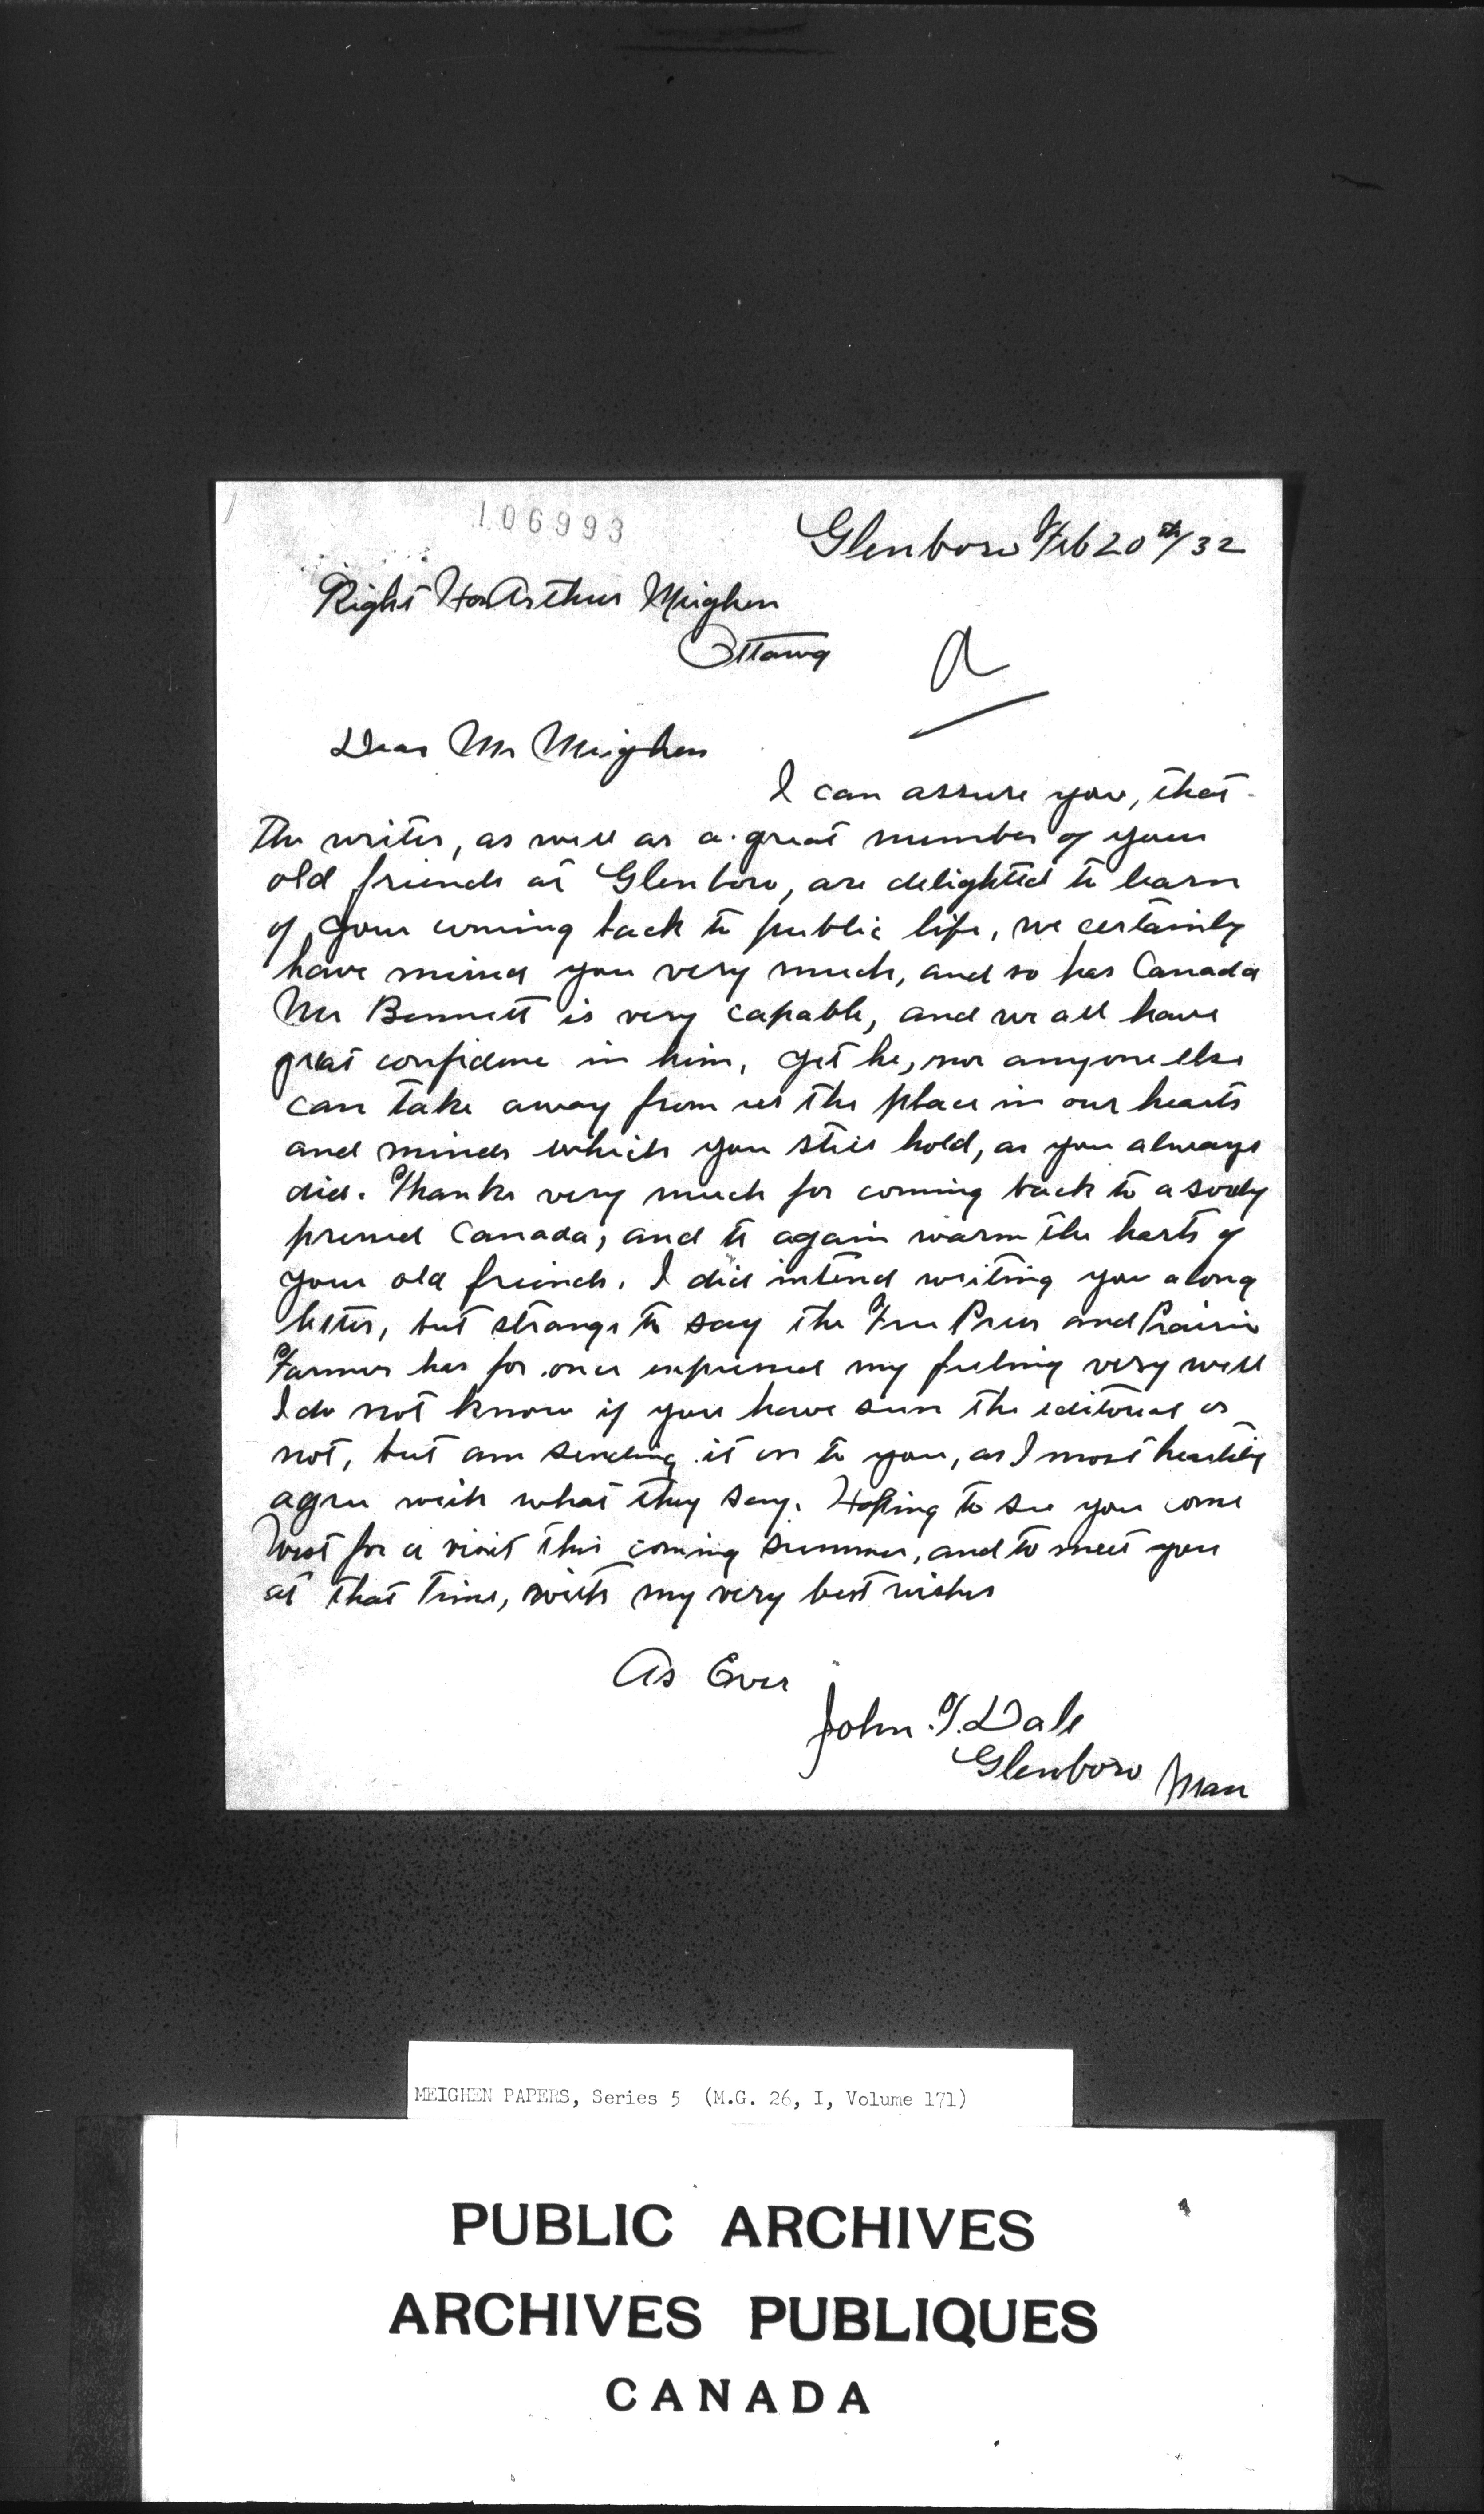 106993
Glenboro Feb 20th/32
Right Hon Arthur Meighen
Ottawa
a
Dear Mr Meighen
I can assure you, that
the writer, as well as a great number of your
old friends at Glenboro, are delighted to learn
of your coming back to public life, we certainly
have missed you very much, and so has Canada
Mr Bennett is very capable, and we all have
great confidence in him, yet he, nor anyone else
can take away from us the place in our hearts
and minds which you still hold, as you always
did. Thanks very much for coming back to a sorely
pressed Canada, and to again warm the harts of
your old friends. I did intend writing you a long
letter, but strange to say the Free Press and Prairie
Farmer has for once expressed my feeling very well
I do not know if you have seen the editorial or
not, but am sending it on to you, as I most heartily
agree with what they say. Hoping to see you come
West for a visit this coming summer, and to meet you
at that time, with my very best wishes
As Ever
John T. Dale
Glenboro Man
MEIGHEN PAPERS, Series 5 (M.G. 26, I, Volume 171)
PUBLIC ARCHIVES
ARCHIVES PUBLIQUES
CANADA